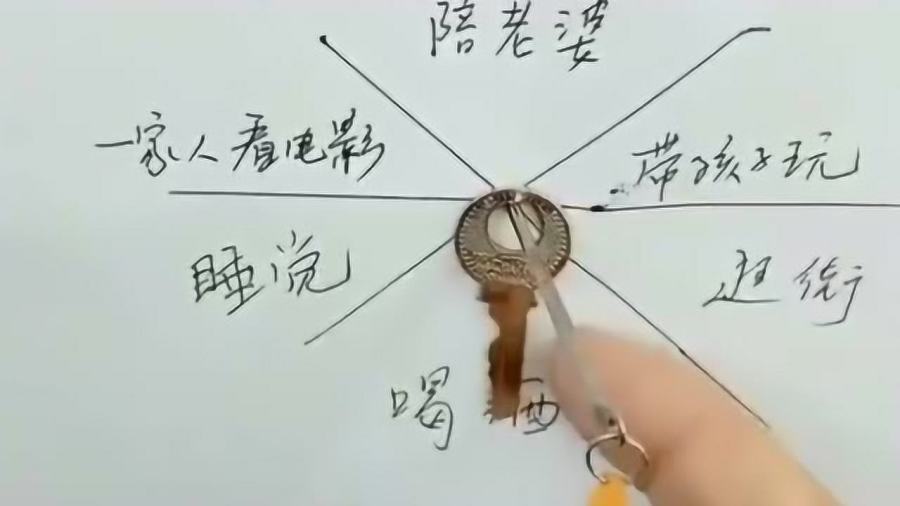 陪老婆
一家人看电影
带孩子玩
睡觉
逛街
喝酒